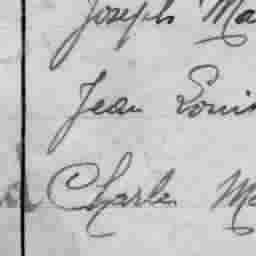 Joseph Ma
Jean Louis
Charles Ma